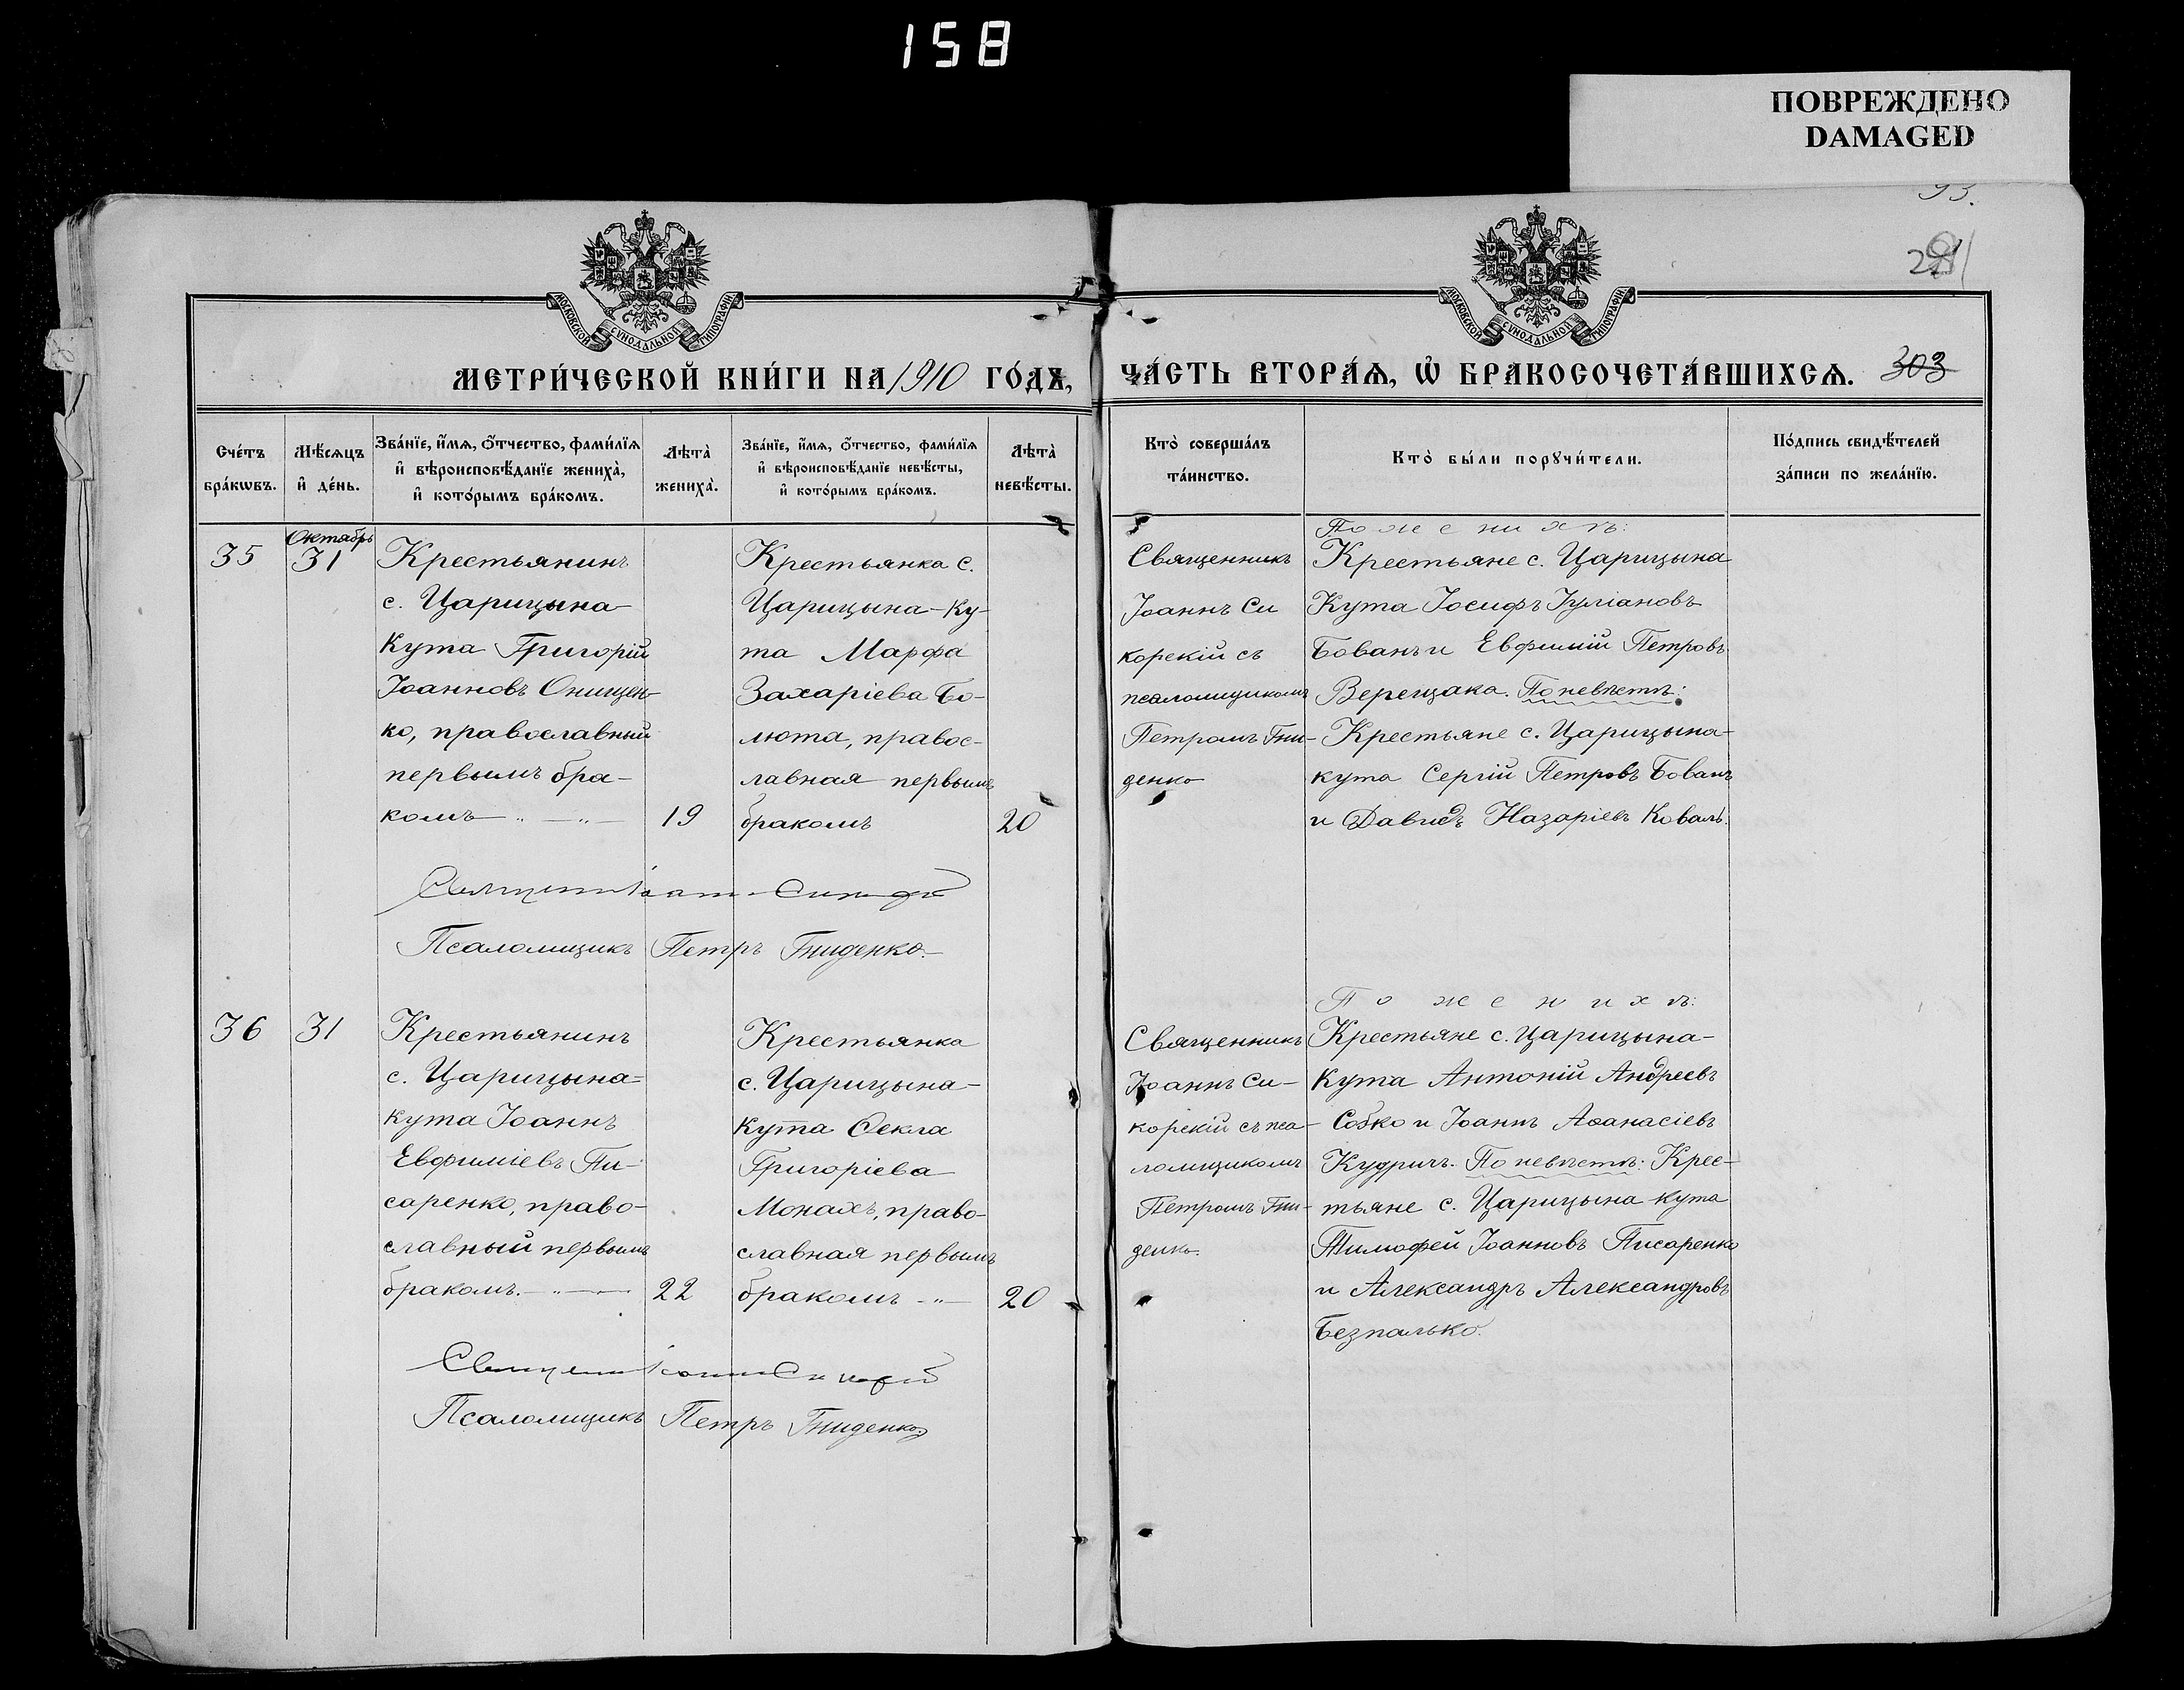 158
ПОВРЕЖДЕНО
DAMAGED
МОСКОВСКОЙ СѴНОДАЛЬНОЙ ТИПОГРАФІИ
МОСКОВСКОЙ СѴНОДАЛЬНОЙ ТИПОГРАФІИ
МЕТРИ́ЧЕСКОЙ КНИ́ГИ НА 1910 ГО́ДЪ,
ЧА́СТЬ ВТОРА́Ѧ, Ѡ҆ БРАКОСОЧЕТА́ВШИХСѦ. 303
Сче́тъ бра́кѡвъ.
Мѣ́сѧцъ и҆ де́нь.
Зва́нїе, и҆́мѧ, ѻ҆́тчество, фами́лїѧ и҆ вѣроисповѣ́данїе жениха̀, и҆ кото́рымъ бра́комъ.
Лѣта̀ жениха̀.
Зва́нїе, и҆́мѧ, ѻ҆́тчество, фами́лїѧ и҆ вѣроисповѣ́данїе невѣ́сты, и҆ кото́рымъ бра́комъ.
Лѣта̀ невѣ́сты.
Кто̀ соверша́лъ та́инство.
Кто̀ бы́ли порꙋчи́тели.
По́дпись свидѣ́телей за́писи по жела́нїю.
35
Октябрь
31
Крестьянинъ
с. Царицына
Кута Григорій
Іоанновъ Онищен-
ко, православный
первымъ бра-
комъ
19
Крестьянка с.
Царицына-Ку-
та Марфа
Захаріева Бо-
люта, правос-
лавная первымъ
бракомъ
20
Священникъ
Іоаннъ Си
корскій съ
псаломщикомъ
Петромъ Гни-
денко
По женихѣ:
Крестьяне с. Царицына
Кута Іосифъ Іуліановъ
Бованъ и Евфимій Петровъ
Верещака. По невѣстѣ:
Крестьяне с. Царицына-
кута Сергій Петровъ Бованъ
и Давидъ Назаріевъ Коваль.
Псаломщикъ Петръ Гниденко.
36
31
Крестьянинъ
с. Царицына-
кута Іоаннъ
Евфиміевъ Пи-
саренко, право-
славный первымъ
бракомъ.
22
Крестьянка
с. Царицына-
кута Ѳекла
Григоріева
Монахъ, право-
славная первымъ
бракомъ
20
Священникъ
Іоаннъ Си-
корскій съ пса-
ломщикомъ
Петромъ Гни-
денко.
По женихѣ:
Крестьяне с. Царицына-
Кута Антоній Андреевъ
Собко и Іоаннъ Аѳанасіевъ
Кудричъ. По невѣстѣ: Крес-
тьяне с. Царицына кута
Тимофей Іоанновъ Писаренко
и Александръ Александровъ
Безпалько.
Псаломщикъ Петръ Гниденко.